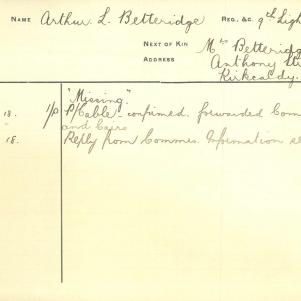 NAME Arthur L. Betteridge REG. &C. 9th Ligh
NEXT OF KIN Mrs Betteridg
ADDRESS Anthony
Kirkcaldy.
"Missing".
18. 1/P P/Cable - confirmed. forwarded Com
and Cairo
18. Reply from Commes. Information re